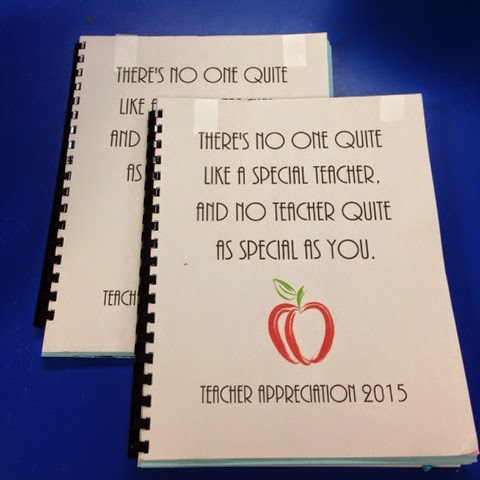 THERE'S NO ONE QUITE
LIKE A
AND
AS
THERE'S NO ONE QUITE
LIKE A SPECIAL TEACHER,
AND NO TEACHER QUITE
AS SPECIAL AS YOU.
TEACHER APPRECIATION 2015